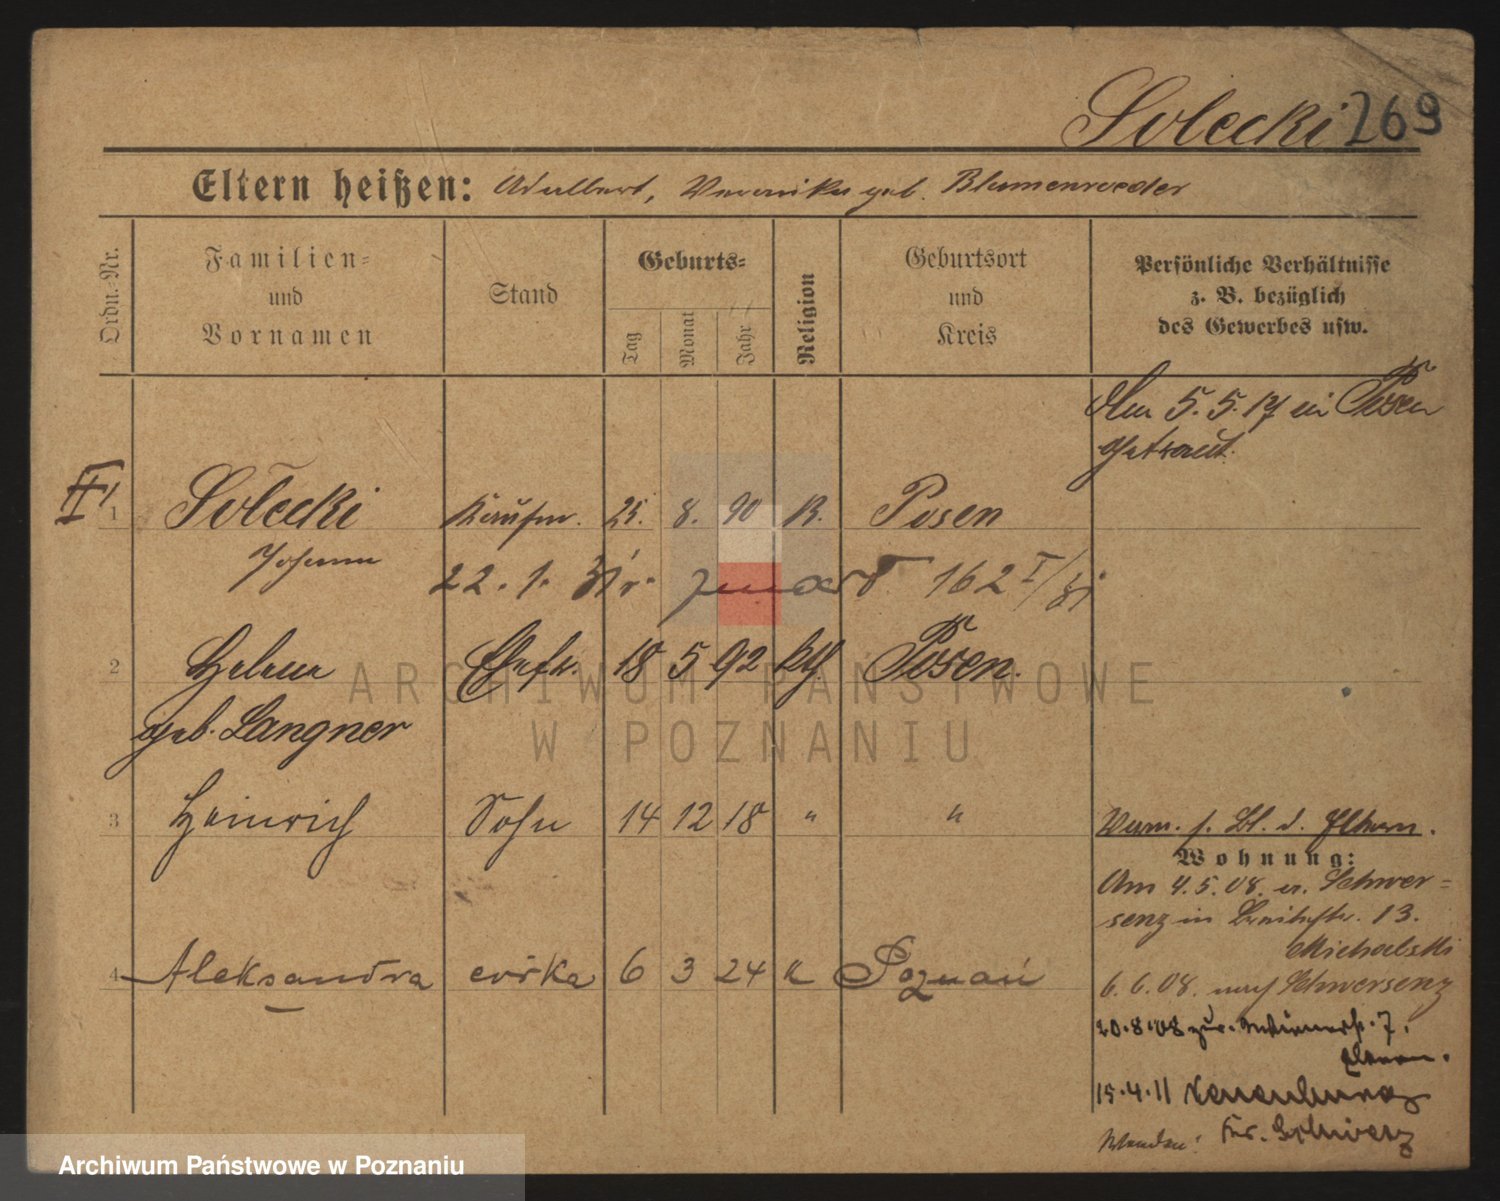 Solecki 269
Eltern heißen: Adalbert, Veronika geb. Blumenroeder
Ordn.-Nr.
Familien-
und
Vornamen
Stand
Geburts-
Tag
Monat
Jahr
Religion
Geburtsort
und
Kreis
Persönliche Verhältnisse
z. B. bezüglich
des Gewerbes usw.
Am 5.5.17 in Posen
getraut.
1 Solecki Kaufm. 25. 8. 90 K. Posen
Johann
22. 1. zmarł 162
2 Helene Ehefr. 18 5 92 kth. Posen.
geb. Langner
3 Heinrich Sohn 14 12 18 " "
d. Eltern.
Wohnung:
Am 4.5.08. v. Schwer-
senz in 13.
Michalski
4 Aleksandra córka 6 3 24 " Poznań
6.6.08. nach Schwersenz
20.8.08 zur. 7.
Eltern.
15.4.11 Neuenburg
Kr. Schwetz
ARCHIWUM PAŃSTWOWE
W POZNANIU
Archiwum Państwowe w Poznaniu